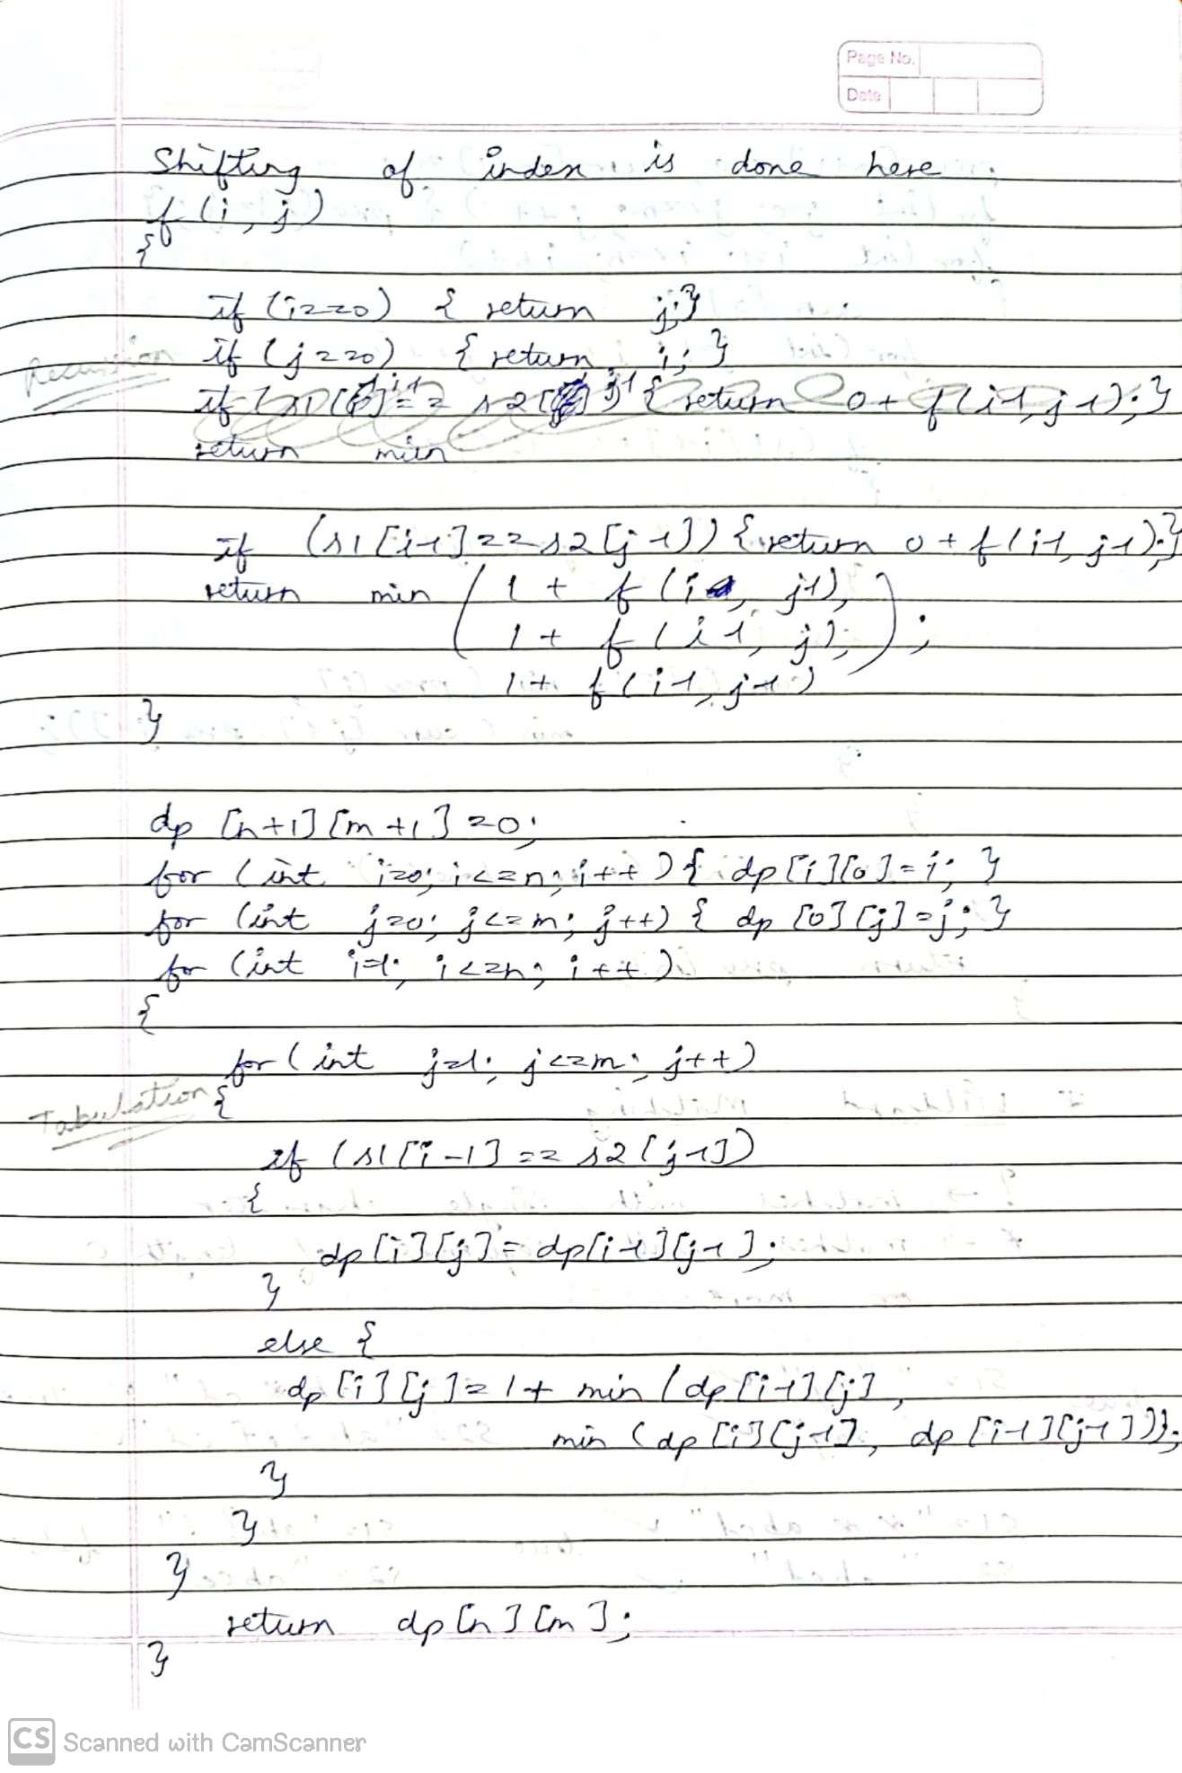 Page No.
Date
Shifting of index is done here.
f(i, j)
{
if (i==0) { return j; }
Recursion
if (j==0) { return i; }
if (s1[i-1]== s2[j-1] { return 0+ f(i-1, j-1); }
return min
if (s1[i-1]==s2[j-1]) { return 0+ f(i-1, j-1); }
return min ( 1 + f(i, j-1),
1 + f(i-1, j), );
1 + f(i-1, j-1)
}
dp [n+1][m+1]=0;
for (int i=0; i<=n; i++) { dp[i][0]=i; }
for (int j=0; j<=m; j++) { dp [0][j]=j; }
for (int i=1; i<=n; i++)
{
for (int j=1; j<=m; j++)
Tabulation
{
if (s1[i-1] == s2[j-1])
{
dp[i][j] = dp[i-1][j-1];
}
else {
dp[i][j]=1+ min (dp[i-1][j],
min (dp[i][j-1], dp[i-1][j-1]));
}
}
}
return dp[n][m];
}
CS Scanned with CamScanner